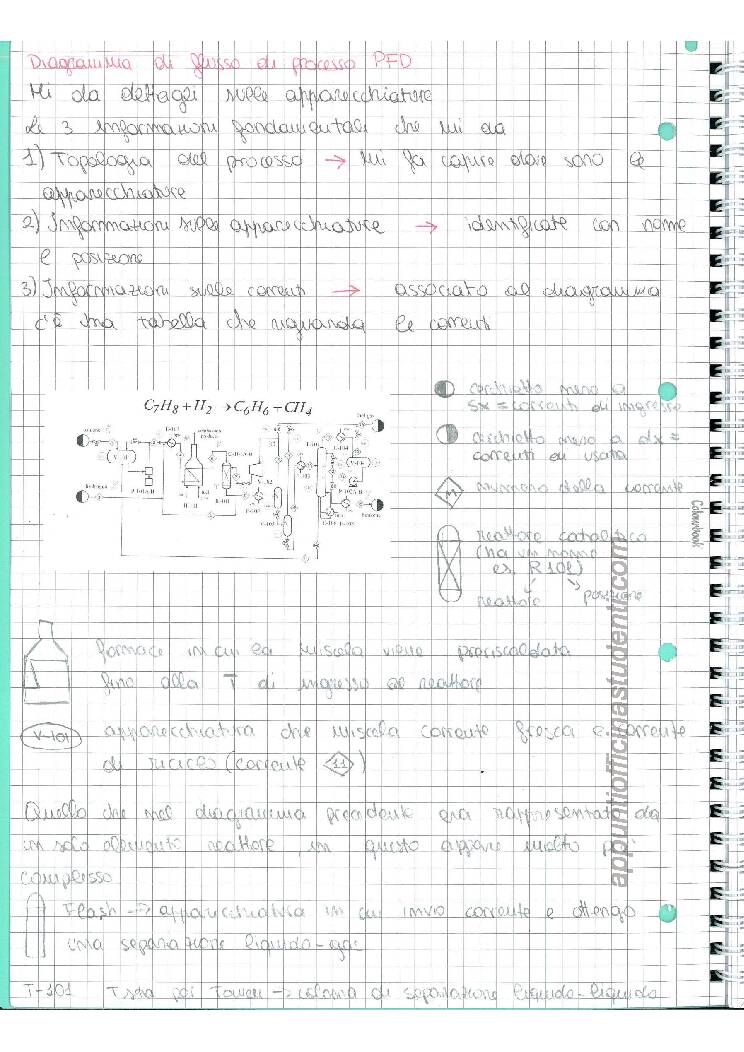 Diagramma di flusso di processo PFD
Mi da dettagli sulle apparecchiature
Le 3 informazioni fondamentali che mi da
1) Topologia del processo → mi fa capire dove sono le
apparecchiature
2) Informazioni sulle apparecchiature → identificate con nome
e posizione
3) Informazioni sulle correnti → associato al diagramma
c'è una tabella che riguarda le correnti
C7H8 + H2 → C6H6 + CH4
cerchietto nero a
sx = correnti di ingresso
cerchietto nero a dx =
correnti di uscita
numero della corrente
reattore catalitico
(ha un nome
es. R101)
reattore posizione
fornace in cui la miscela viene preriscaldata
fino alla T di ingresso al reattore
V-101 apparecchiatura che miscela corrente fresca e corrente
di riciclo (corrente 11)
Quello che nel diagramma precedente era rappresentato da
un solo elemento reattore, in questo appare molto più
complesso
Flash → apparecchiatura in cui invio corrente e ottengo
una separazione liquido-gas
T-101 T sta per Tower → colonna di separazione liquido-liquido
Colourbook
appuntiofficinastudenti.com